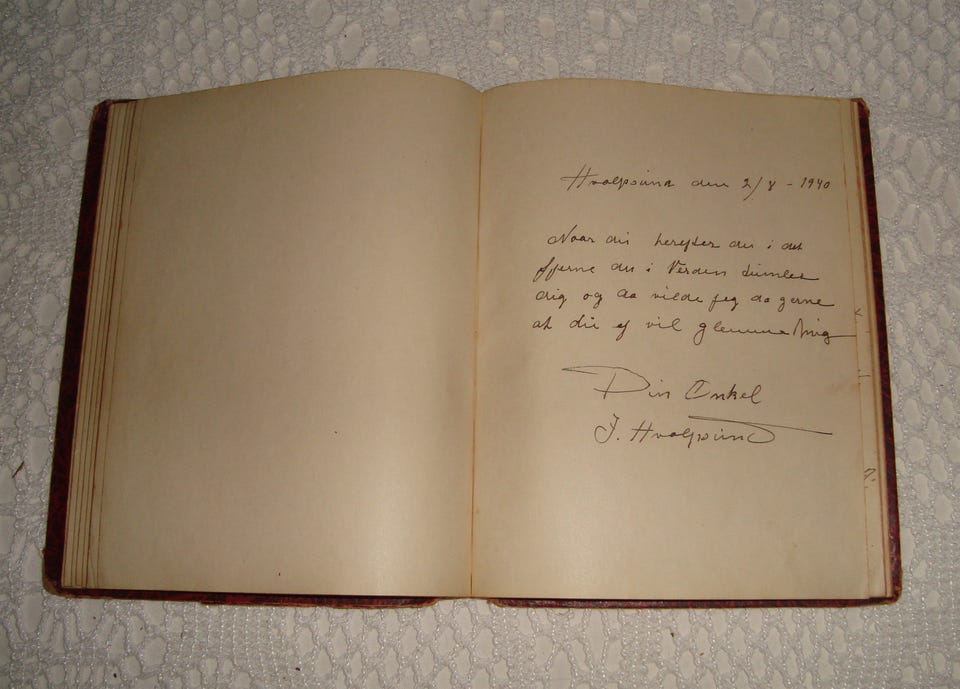 Hvalpsund den 2/8 - 1940
Naar du herefter du i det
fjerne du i Verden tumler
dig og da vilde jeg da gerne
at du ej vil glemme Mig
Din Onkel
J. Hvalpsund